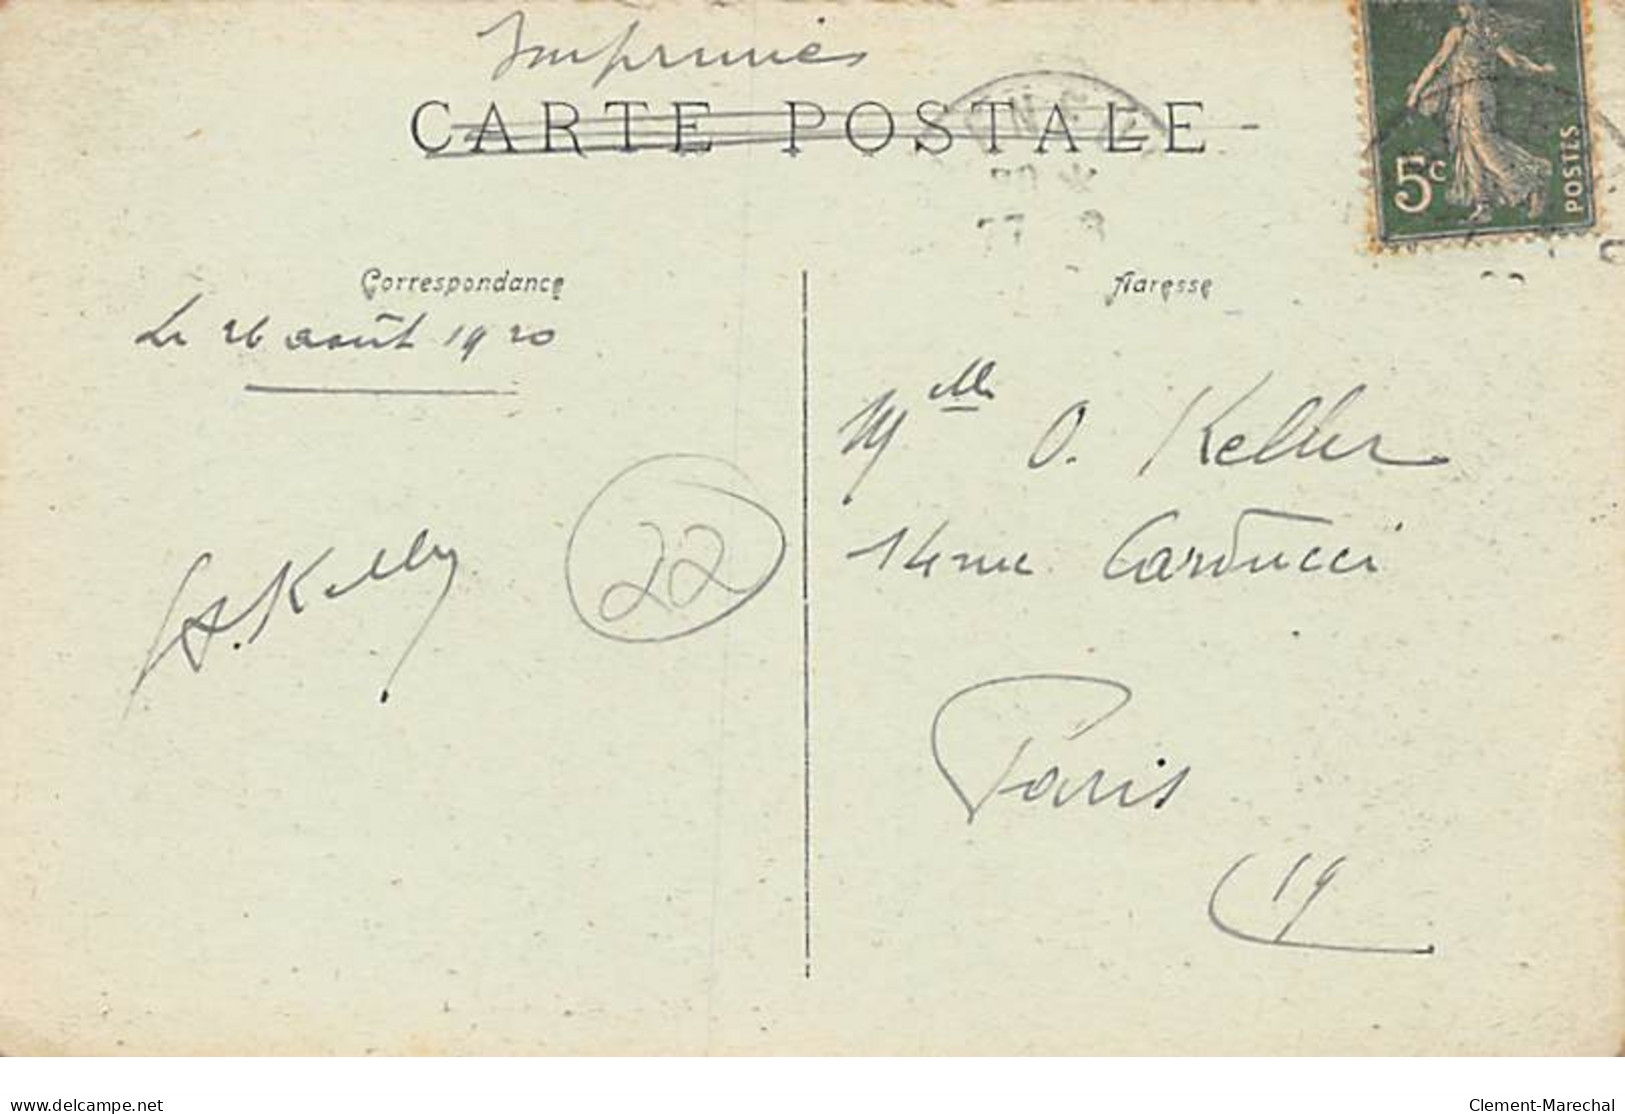 Imprimés
CARTE POSTALE
5c
POSTES
Correspondance
Adresse
Le 26 août 1920
Mlle O. Keller
14 rue Carducci
Keller
22
Paris
19
delcampe.net
Clement-Marechal